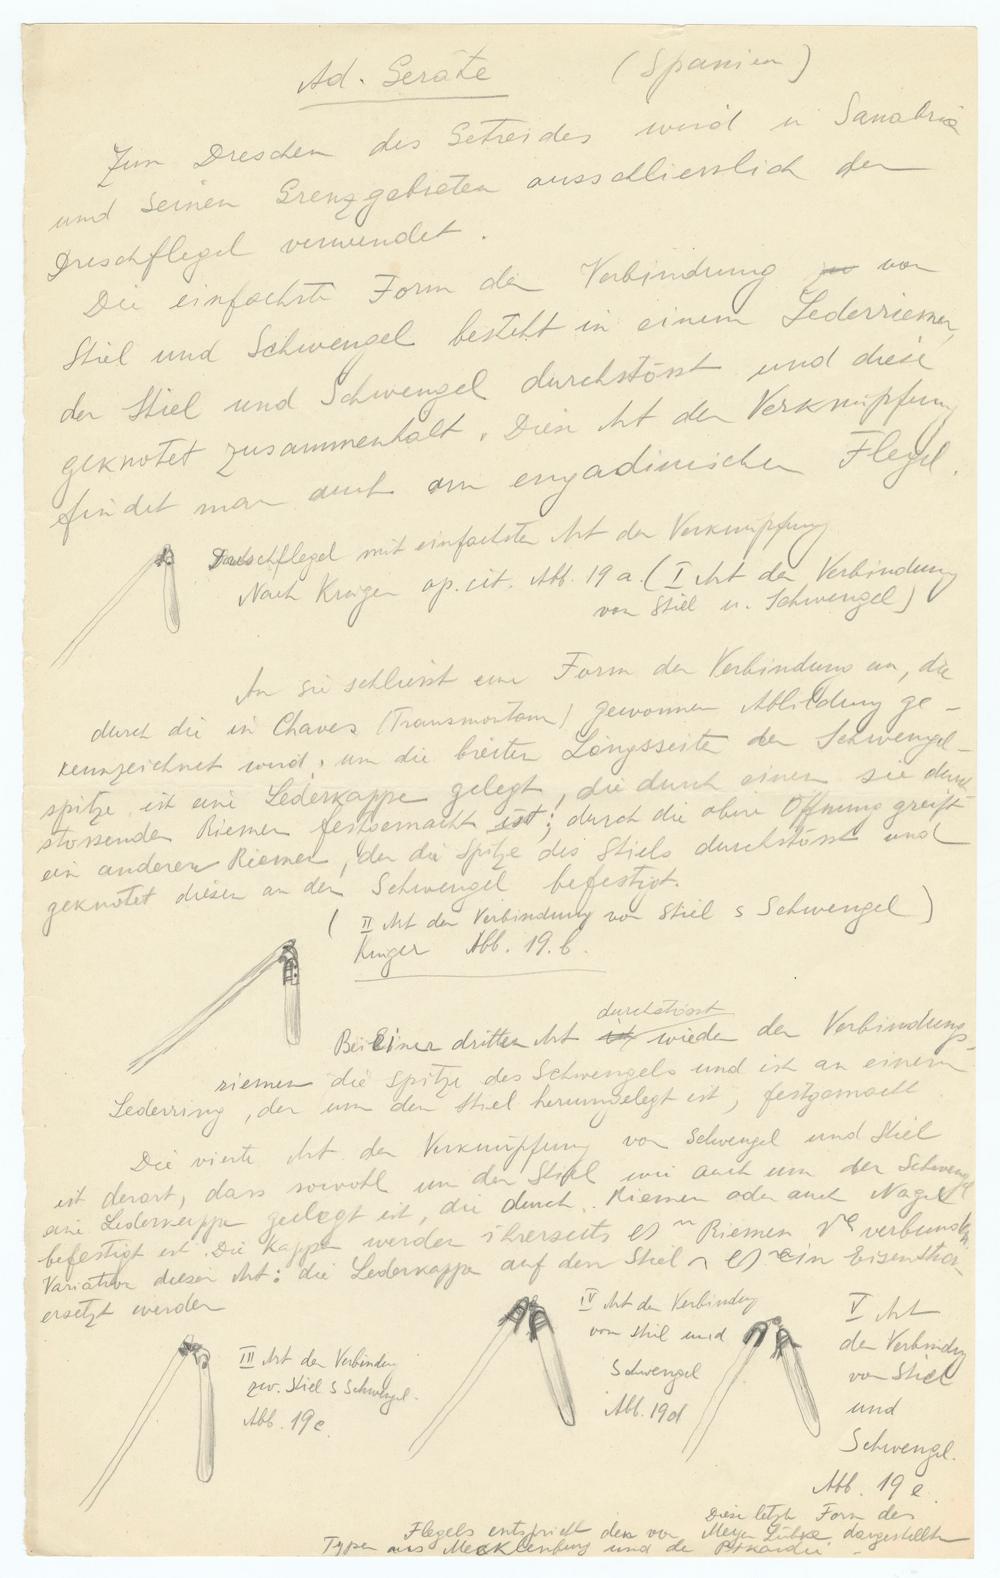 Ad. Geräte (Spanien)
Zum Dreschen des Getreides wird in Sanabria
und seinen Grenzgebieten ausschliesslich der
Dreschflegel verwendet.
Die einfachste Form der Verbindung von
Stiel und Schwengel besteht in einem Lederriemen,
der Stiel und Schwengel durchstösst und diese
geknotet zusammenhalt. Diese Art der Verknüpfung
findet man auch am engadinischen Flegel.
Dreschflegel mit einfachster Art der Verknüpfung
Nach Krüger op. cit. Abb. 19 a. (I Art der Verbindung
von Stiel u. Schwengel)
An sie schliesst eine Form der Verbindung an, die
durch die in Chaves (Transmontam) gewonnene Abbildung ge-
kennzeichnet wird, um die breiten Längsseiten der Schwengel-
spitze ist eine Lederkappe gelegt, die durch einen sie durch
stossenden Riemen festgemacht ist; durch die obere Öffnung greift
ein anderer Riemen, der die Spitze des Stiels durchstösst und
geknotet diesen an den Schwengel befestigt.
(II Art der Verbindung von Stiel s Schwengel)
Krüger Abb. 19. b.
durchstösst
Bei einer dritten Art ist wieder der Verbindungs-
riemen die Spitze des Schwengels und ist an einem
Lederring, der um den Stiel herumgelegt ist, festgemacht
Die vierte Art der Verknüpfung von Schwengel und Stiel
ist derart, dass sowohl um den Stiel wie auch um den Schwengel
eine Lederkappe gelegt ist, die durch Riemen oder auch Nagel
befestigt ist. Die Kappen werden ihrerseits Riemen verbunden.
Variation dieser Art: die Lederkappe auf den Stiel ein Eisen
ersetzt werden
III Art der Verbindung
zw. Stiel s Schwengel.
Abb. 19c.
IV Art der Verbindung
von Stiel und
Schwengel
Abb. 19d
V Art
der Verbindung
von Stiel
und
Schwengel.
Abb. 19 e.
Diese letzte Form des
Flegels entspricht den von Meyer Lübke dargestellten
Typen aus Mecklenburg und der Pikardie.